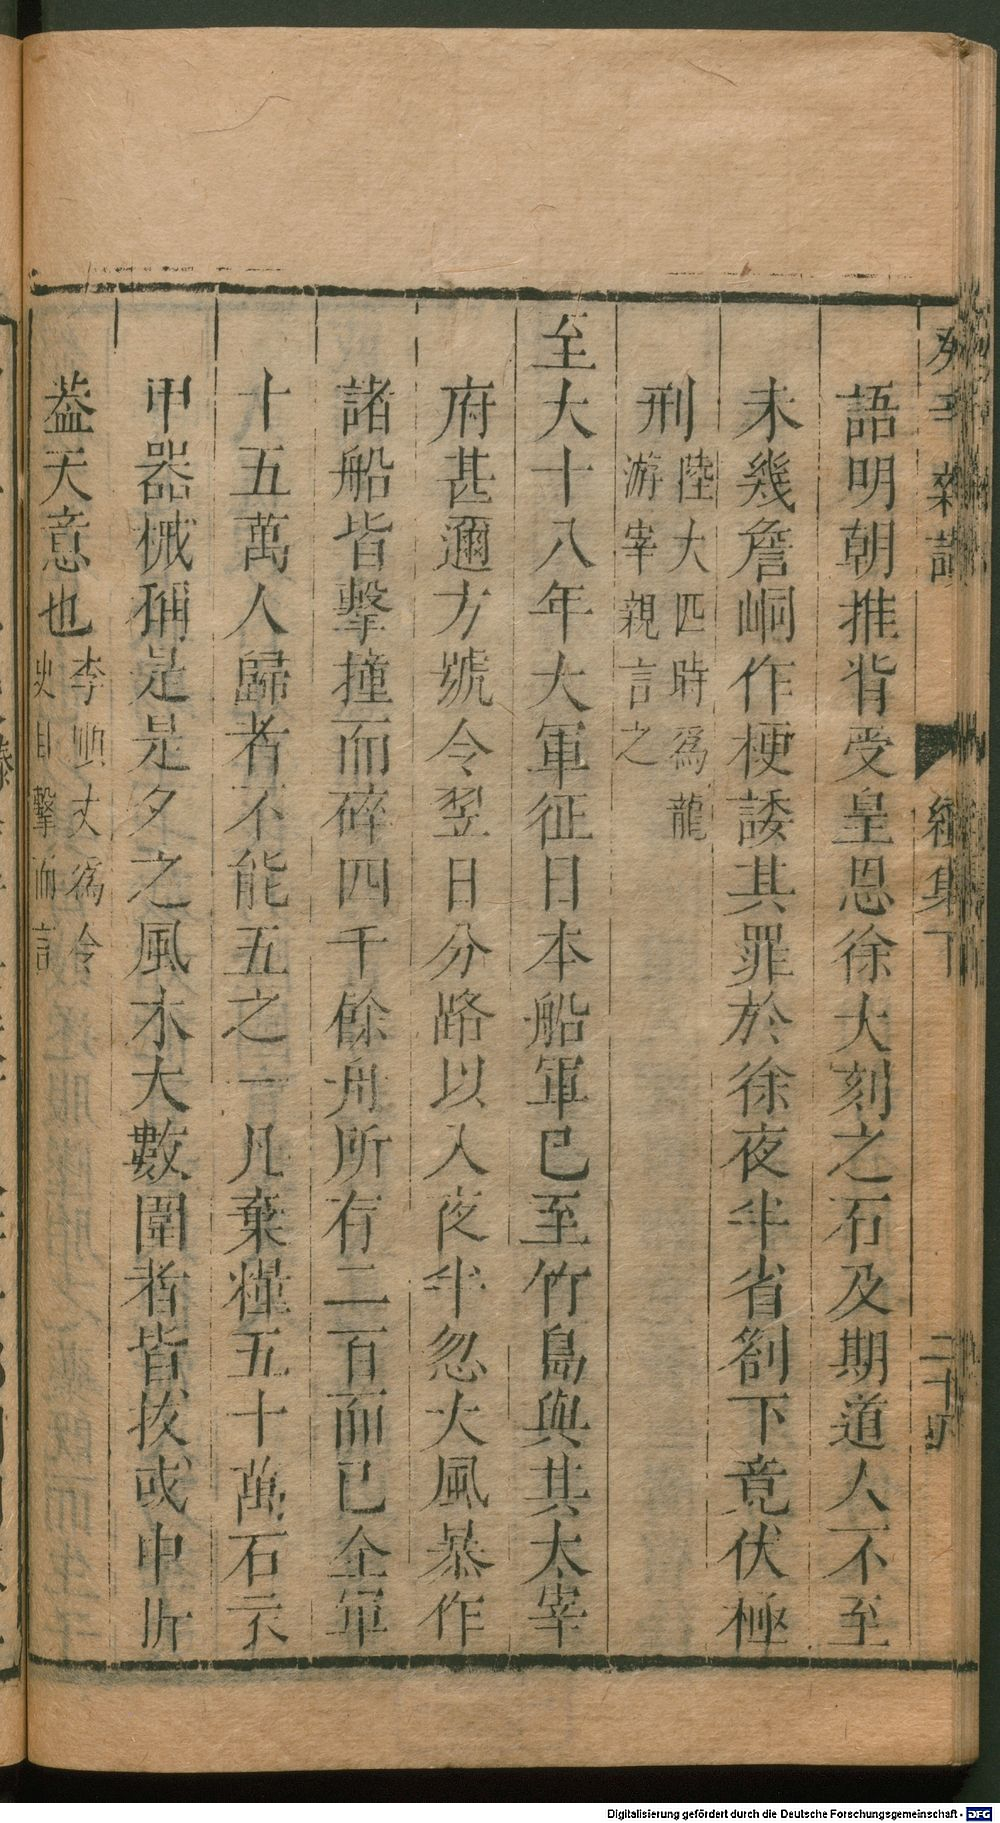 語明朝推背受皇恩徐大刻之石及期道人不至
未幾詹峒作梗諉其罪於徐夜半省劄下竟伏極
刑陸大匹時為龍
游宰親言之
至大十八年大軍征日本船軍已至竹島與其太宰
府甚邇方號令翌日分路以入夜半忽大風暴作
諸船皆擊撞而碎四千餘舟所存二百而已全軍
十五萬人歸者不能五之一凡棄糧五十萬石衣
甲器械稱是是夕之風木大數圍者皆拔或中折
葢天意也李順丈為令
史目擊而言
續集下
Digitalisierung gefördert durch die Deutsche Forschungsgemeinschaft - DFG